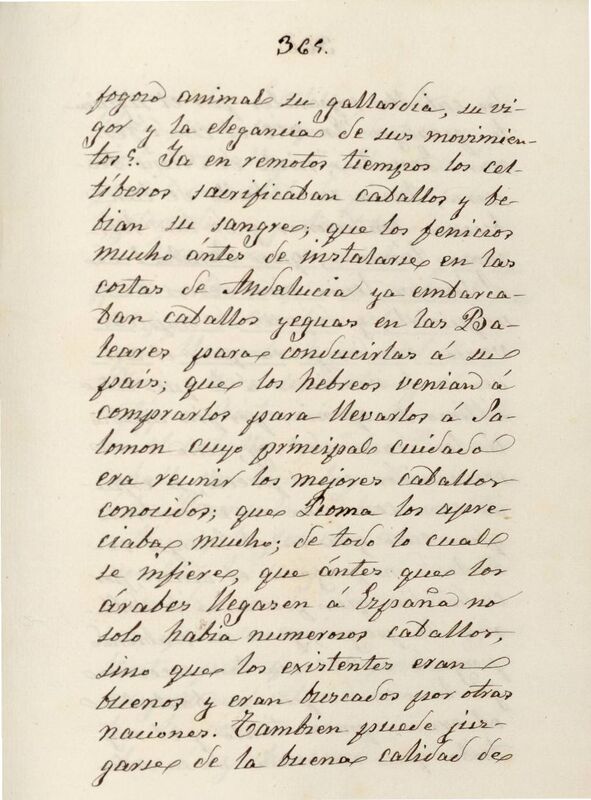 365.
fogoso animal su gallardia, su vi-
gor y la elegancia de sus movimien-
tos?. Ya en remotos tiempos los cel-
tíberos sacrificaban caballos y be-
bian su sangre; que los fenicios
mucho ántes de instalarse en las
costas de Andalucia ya embarca-
ban caballos yeguas en las Ba-
leares para conducirlas á su
país; que los hebreos venian á
comprarlos para llevarlos á Sa-
lomon cuyo principal cuidado
era reunir los mejores caballos
conocidos; que Roma los apre-
ciaba mucho; de todo lo cual
se infiere, que ántes que los
árabes llegasen á España no
solo habia numerosos caballos,
sino que los existentes eran
buenos y eran buscados por otras
naciones. Tambien puede juz-
garse de la buena calidad de